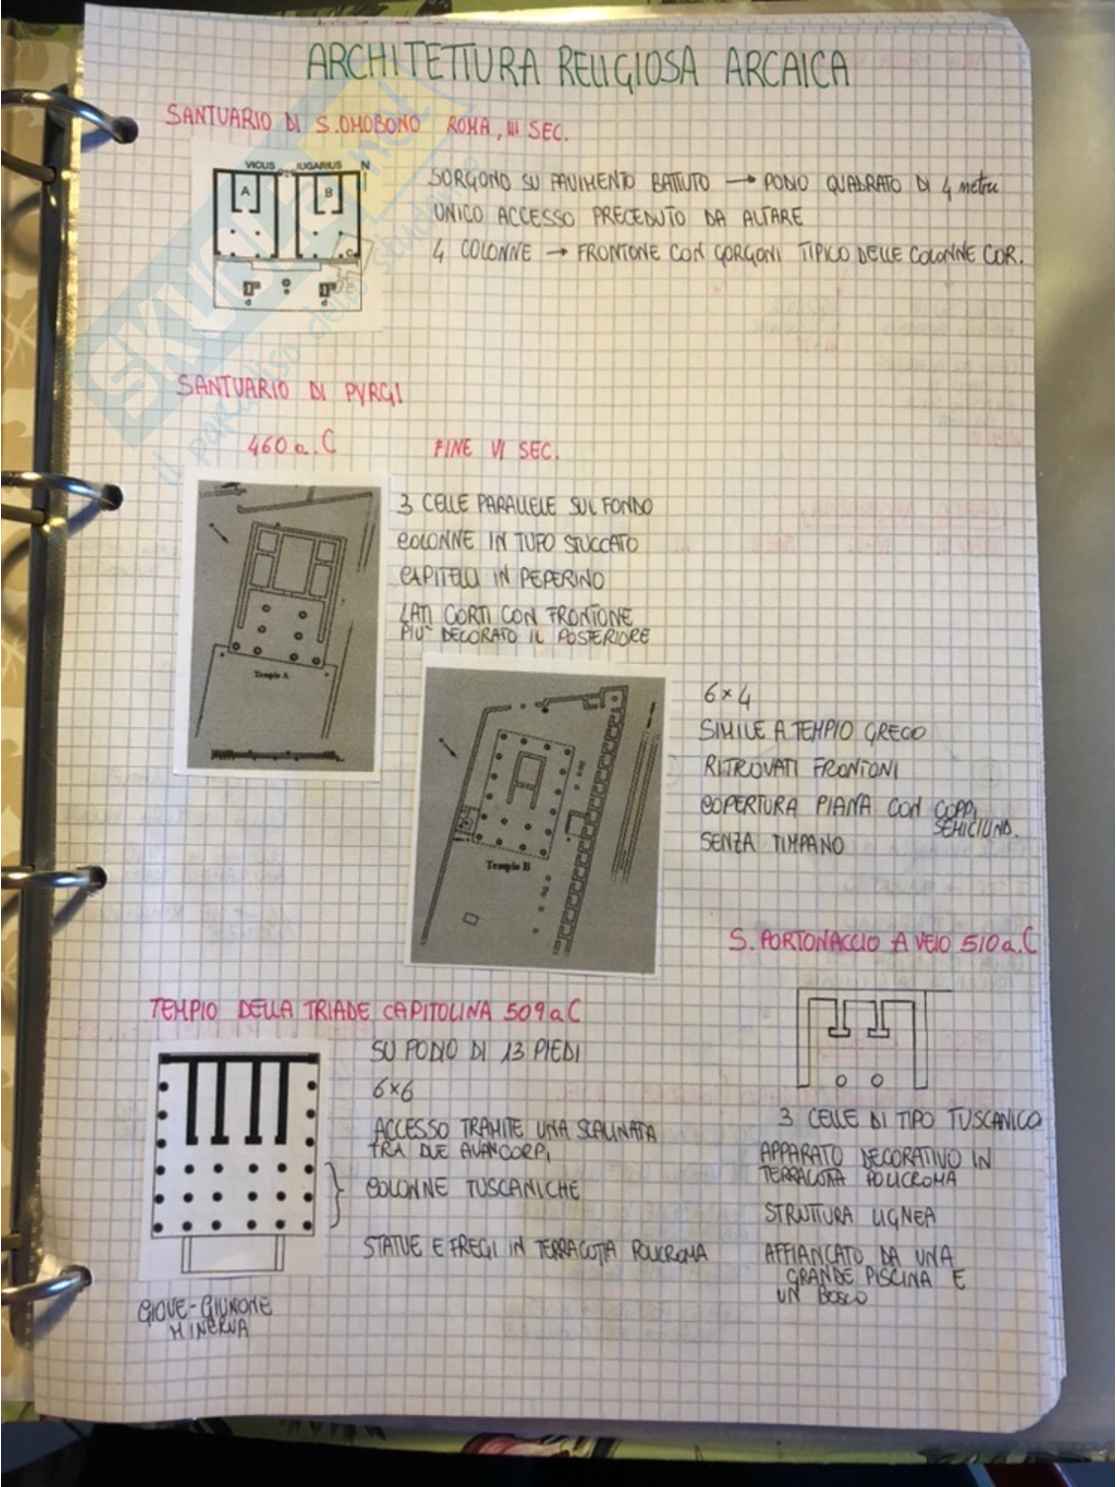 ARCHITETTURA RELIGIOSA ARCAICA
SANTUARIO DI S.OMOBONO ROMA, III SEC.
VICUS IUGARIUS N
A B
C
d d
SORGONO SU PAVIMENTO BATTUTO → PODIO QUADRATO DI 4 metri
UNICO ACCESSO PRECEDUTO DA ALTARE
4 COLONNE → FRONTONE CON GORGONI TIPICO DELLE COLONNE COR.
SKUOLA.net
il paradiso dello studente
SANTUARIO DI PYRGI
460 a.C
FINE VI SEC.
3 CELLE PARALLELE SUL FONDO
COLONNE IN TUFO STUCCATO
CAPITELLI IN PEPERINO
LATI CORTI CON FRONTONE
PIU' DECORATO IL POSTERIORE
Tempio A
6×4
SIMILE A TEMPIO GRECO
RITROVATI FRONTONI
COPERTURA PIANA CON COPPI
SEMICILIND.
SENZA TIMPANO
Tempio B
S. PORTONACCIO A VEIO 510 a.C
3 CELLE DI TIPO TUSCANICO
APPARATO DECORATIVO IN
TERRACOTTA POLICROMA
STRUTTURA LIGNEA
AFFIANCATO DA UNA
GRANDE PISCINA E
UN BOSCO
TEMPIO DELLA TRIADE CAPITOLINA 509 a.C
SU PODIO DI 13 PIEDI
6×6
ACCESSO TRAMITE UNA SCALINATA
TRA DUE AVANCORPI
COLONNE TUSCANICHE
STATUE E FREGI IN TERRACOTTA POLICROMA
GIOVE-GIUNONE
MINERVA